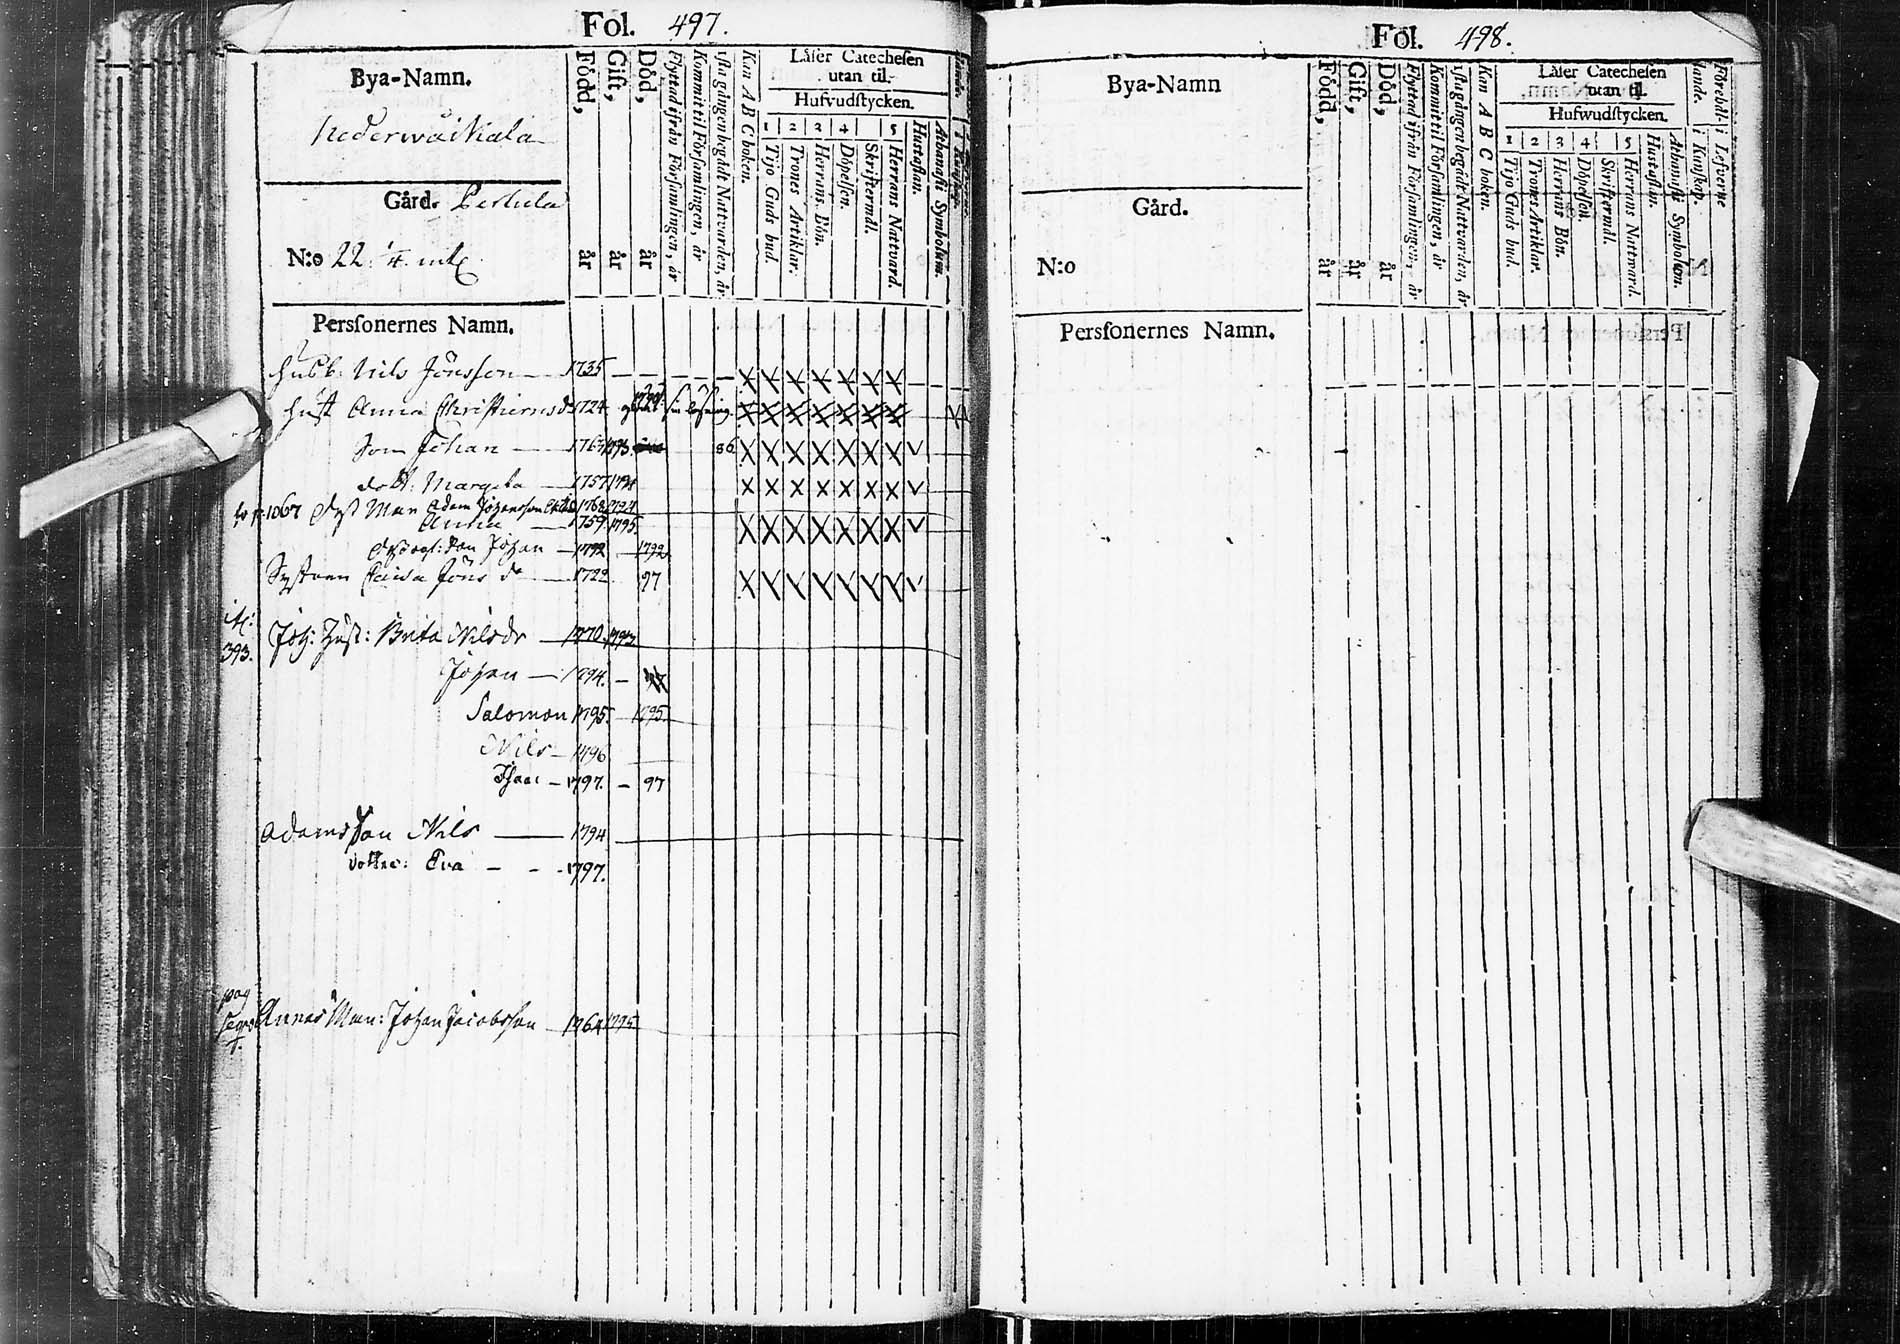 Fol. 497.
Bya-Namn.
Nederwåikala
Gård. Pertula
N:o 22. 1/4 mtl
Född, år
Gift, år
Död, år
Flyttad ifrån Församlingen, år
Kommit til Församlingen, år
1sta gången begådt Nattvarden, år
Kan A B C boken.
Läser Catechesen
utan til.
Hufvudstycken.
1 Tijo Guds bud.
2 Trones Artiklar.
3 Herrans Bön.
4 Döpelsen.
Skriftermål.
5 Herrans Nattvard.
Hustaflan.
Athanasii Symbolum.
Personernes Namn.
Husb. Nils Jönsson 1735
Hust Anna Christiernsd 1724 sin läsning.
Son Johan 1763 1793. 86
dott. Margeta 1757 1794
1067 Adam Johansson 1768 1794
Anna 1759. 1795.
Son Johan 1792 1792
Systren Caisa Jöns dr 1722 97
393. Joh: Hust: Brita Nilsdr 1770. 1793
Johan 1794.
Salomon 1795. 1795.
Nils 1796
Isaac 1797. 97
Adams Son Nils 1794
dotter: Eva 1797.
pag
Annas Man: Johan Jacobsson 1764 1795
Fol. 498.
Bya-Namn
Gård.
N:o
Född, år
Gift, år
Död, år
Flyttad ifrån Församlingen, år
Kommit til Församlingen, år
1sta gången begådt Nattvarden, år
Kan A B C boken.
Läser Catechesen
utan til.
Hufwudstycken.
1 Tijo Guds bud.
2 Trones Artiklar.
3 Herrans Bön.
4 Döpelsen.
Skriftermål.
5 Herrans Nattward.
Hustaflan.
Athanasii Symbolum.
i Kunskap.
i Lefverne
Personernes Namn.